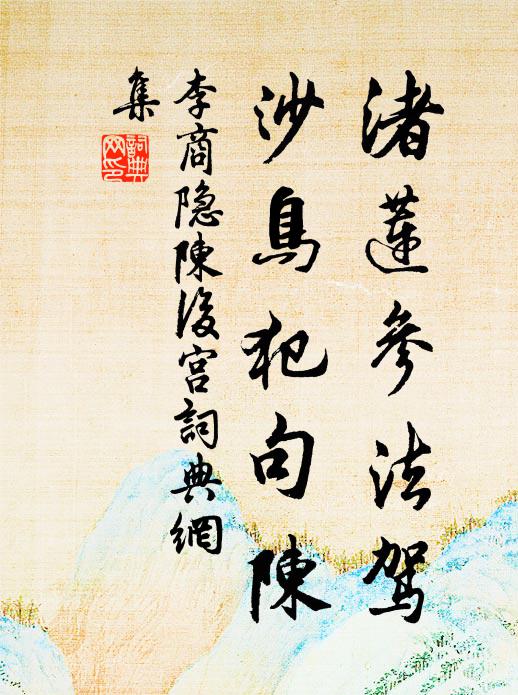 渚蓮參法駕
沙鳥犯句陳
李商隐陳後宮詞典網
集
詞典網印